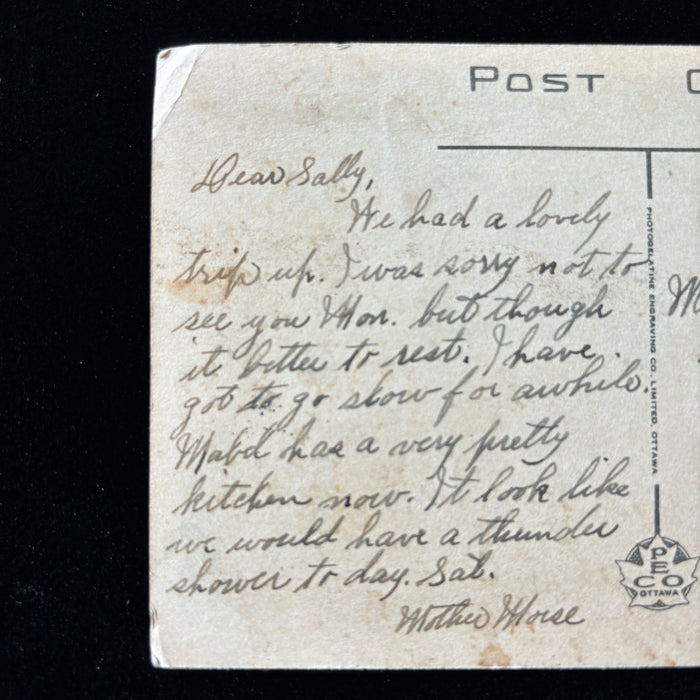 POST C
Dear Sally,
We had a lovely
trip up. I was sorry not to
see you Mon. but though
it better to rest. I have
got to go slow for awhile.
Mabel has a very pretty
kitchen now. It look like
we would have a thunder
shower to day. Sat.
Mother Morse
PHOTOGELATINE ENGRAVING CO. LIMITED, OTTAWA
M
PECO
OTTAWA